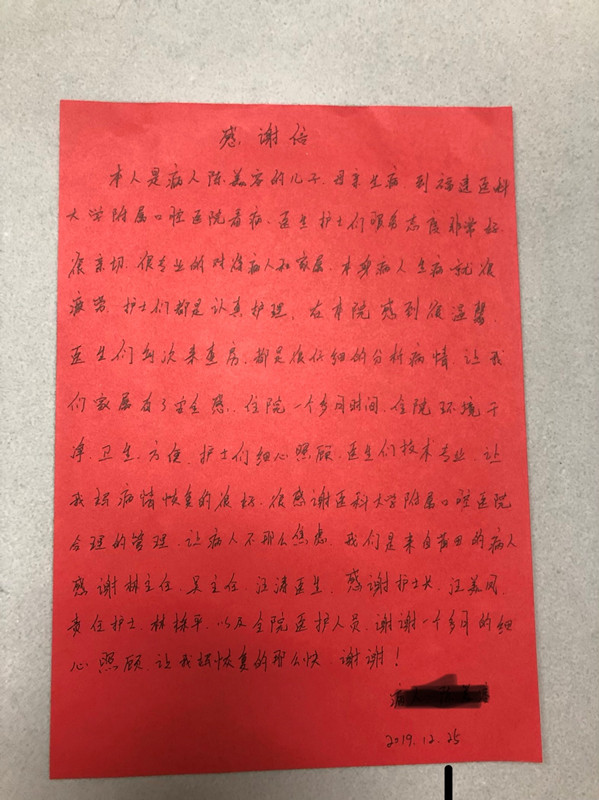 感谢信
本人是病人陈美容的儿子.母亲生病到福建医科
大学附属口腔医院看病.医生护士们服务态度非常好
很亲切.很专业的对待病人和家属.本身病人生病就很
疲劳.护士们都是认真护理.在本院感到很温馨.
医生们每次来查房.都是很仔细的分析病情让我
们家属有了安全感.住院一个多月时间.住院环境干
净.卫生.方便.护士们细心照顾.医生们技术专业.让
我妈病情恢复的很好.很感谢医科大学附属口腔医院
合理的管理.让病人不那么焦虑.我们是来自莆田的病人
感谢林主任.吴主任.汪涛医生.感谢护士长.汪美凤.
责任护士.林
以及全院医护人员.谢谢一个多月的细
心照顾.让我妈恢复的那么快.谢谢!
2019.12.25